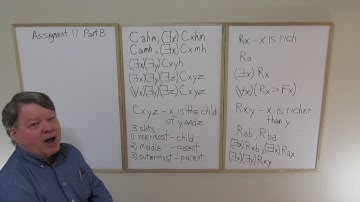 Assignment 11 Part B
Cahm, (∃x) Cxhm
Camh, (∃x) Cxmh
(∃x)(∃y) Cxyh
(∃x)(∃y)(∃z) Cxyz
(∀x)(∃y)(∃z) Cxyz
Cxyz - x is the child
of y and z
3 slots
1) innermost - child
2) middle - parent
3) outermost - parent
Rx - x is rich
Ra
(∃x) Rx
(∀x)(Rx ⊃ Fx)
Rxy - x is richer
than y
Rab, Rba
(∃x) Rxb, (∃x) Rax
(∃x)(∃y) Rxy